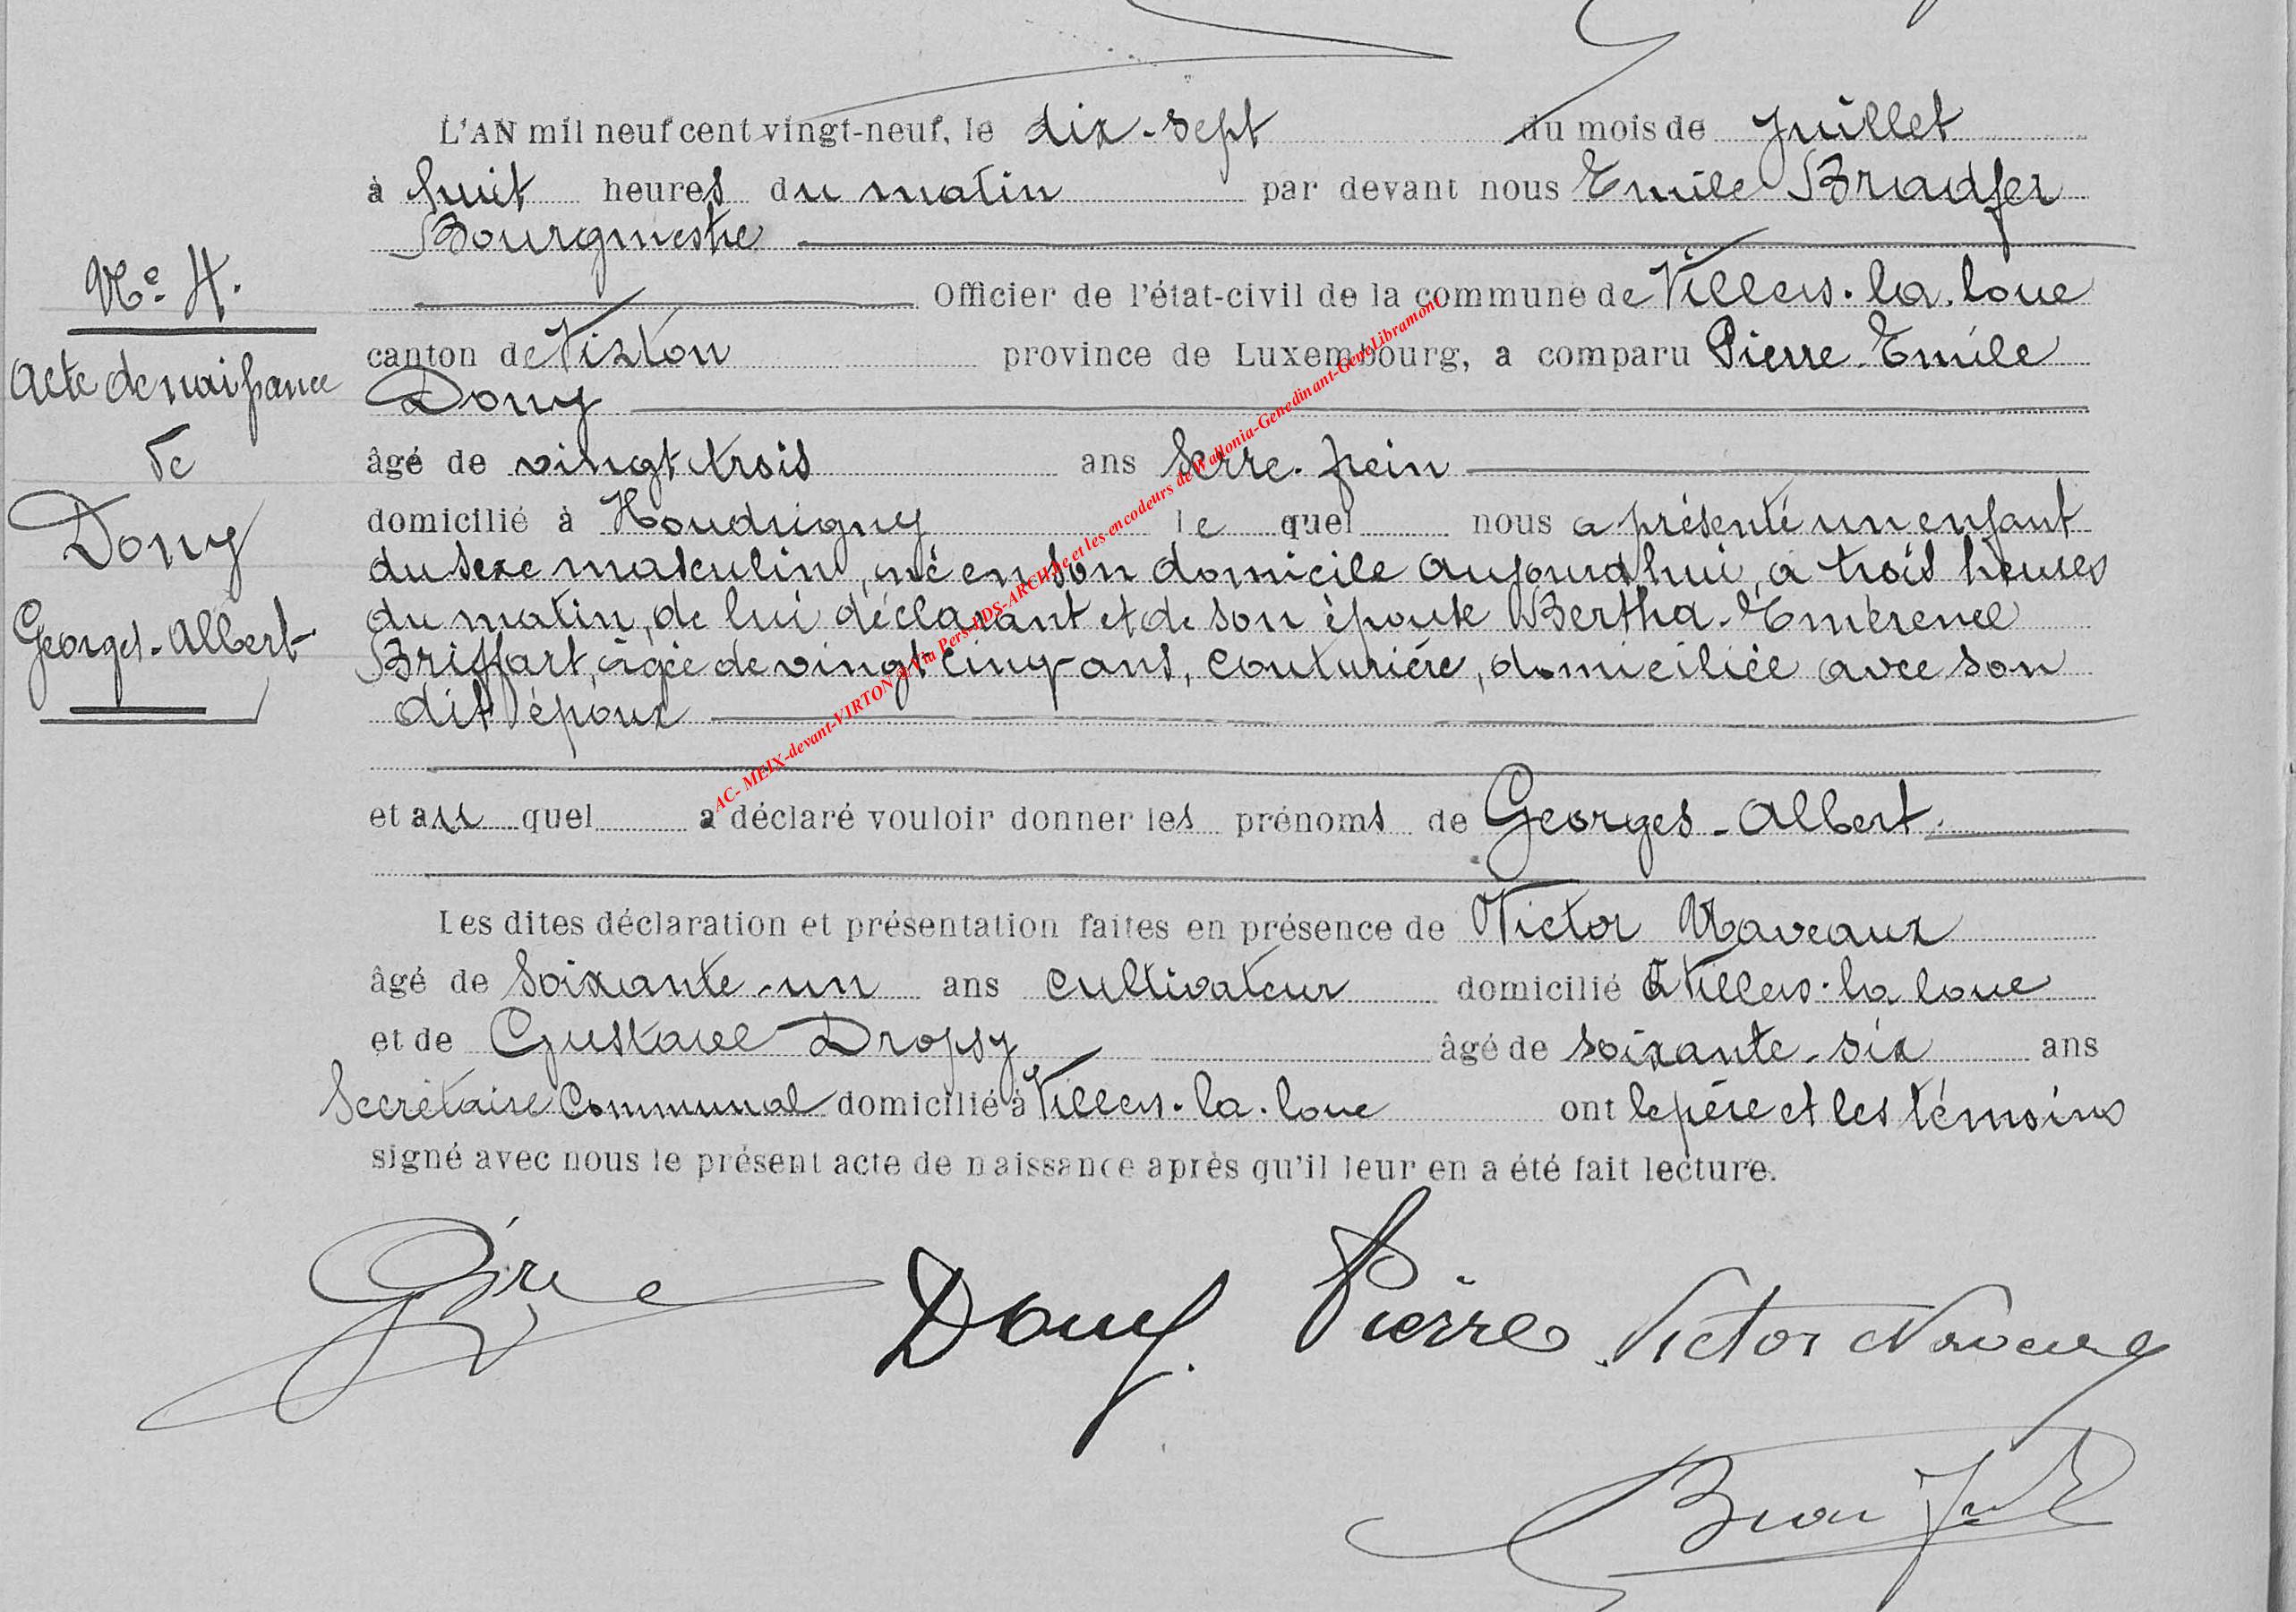 L'AN mil neuf cent vingt-neuf, le dix-sept du mois de Juillet
à huit heures du matin par devant nous Emile Bradfer
Bourgmestre
Officier de l'état-civil de la commune de Villers-la-loue
canton de Virton province de Luxembourg, a comparu Pierre-Emile
Dony
âgé de vingt trois ans serre-frein
domicilié à Houdrigny le quel nous a présenté un enfant
du sexe masculin, né en son domicile aujourd'hui, à trois heures
du matin, de lui déclarant et de son épouse Bertha-Emérence
Briffart, âgée de vingt cinq ans, couturière, domiciliée avec son
dit époux
et au quel a déclaré vouloir donner les prénoms de Georges-Albert.
Les dites déclaration et présentation faites en présence de Victor Naveaux
âgé de soixante-un ans cultivateur domicilié à Villers-la loue
et de Gustave Dropsy âgé de soixante-six ans
Secrétaire Communal domicilié à Villers-la-loue ont le père et les témoins
signé avec nous le présent acte de naissance après qu'il leur en a été fait lecture.
N° 4.
Acte de naissance
de
Dony
Georges-Albert
Dony Pierre Victor Naveaux
AC- MEIX-devant-VIRTON